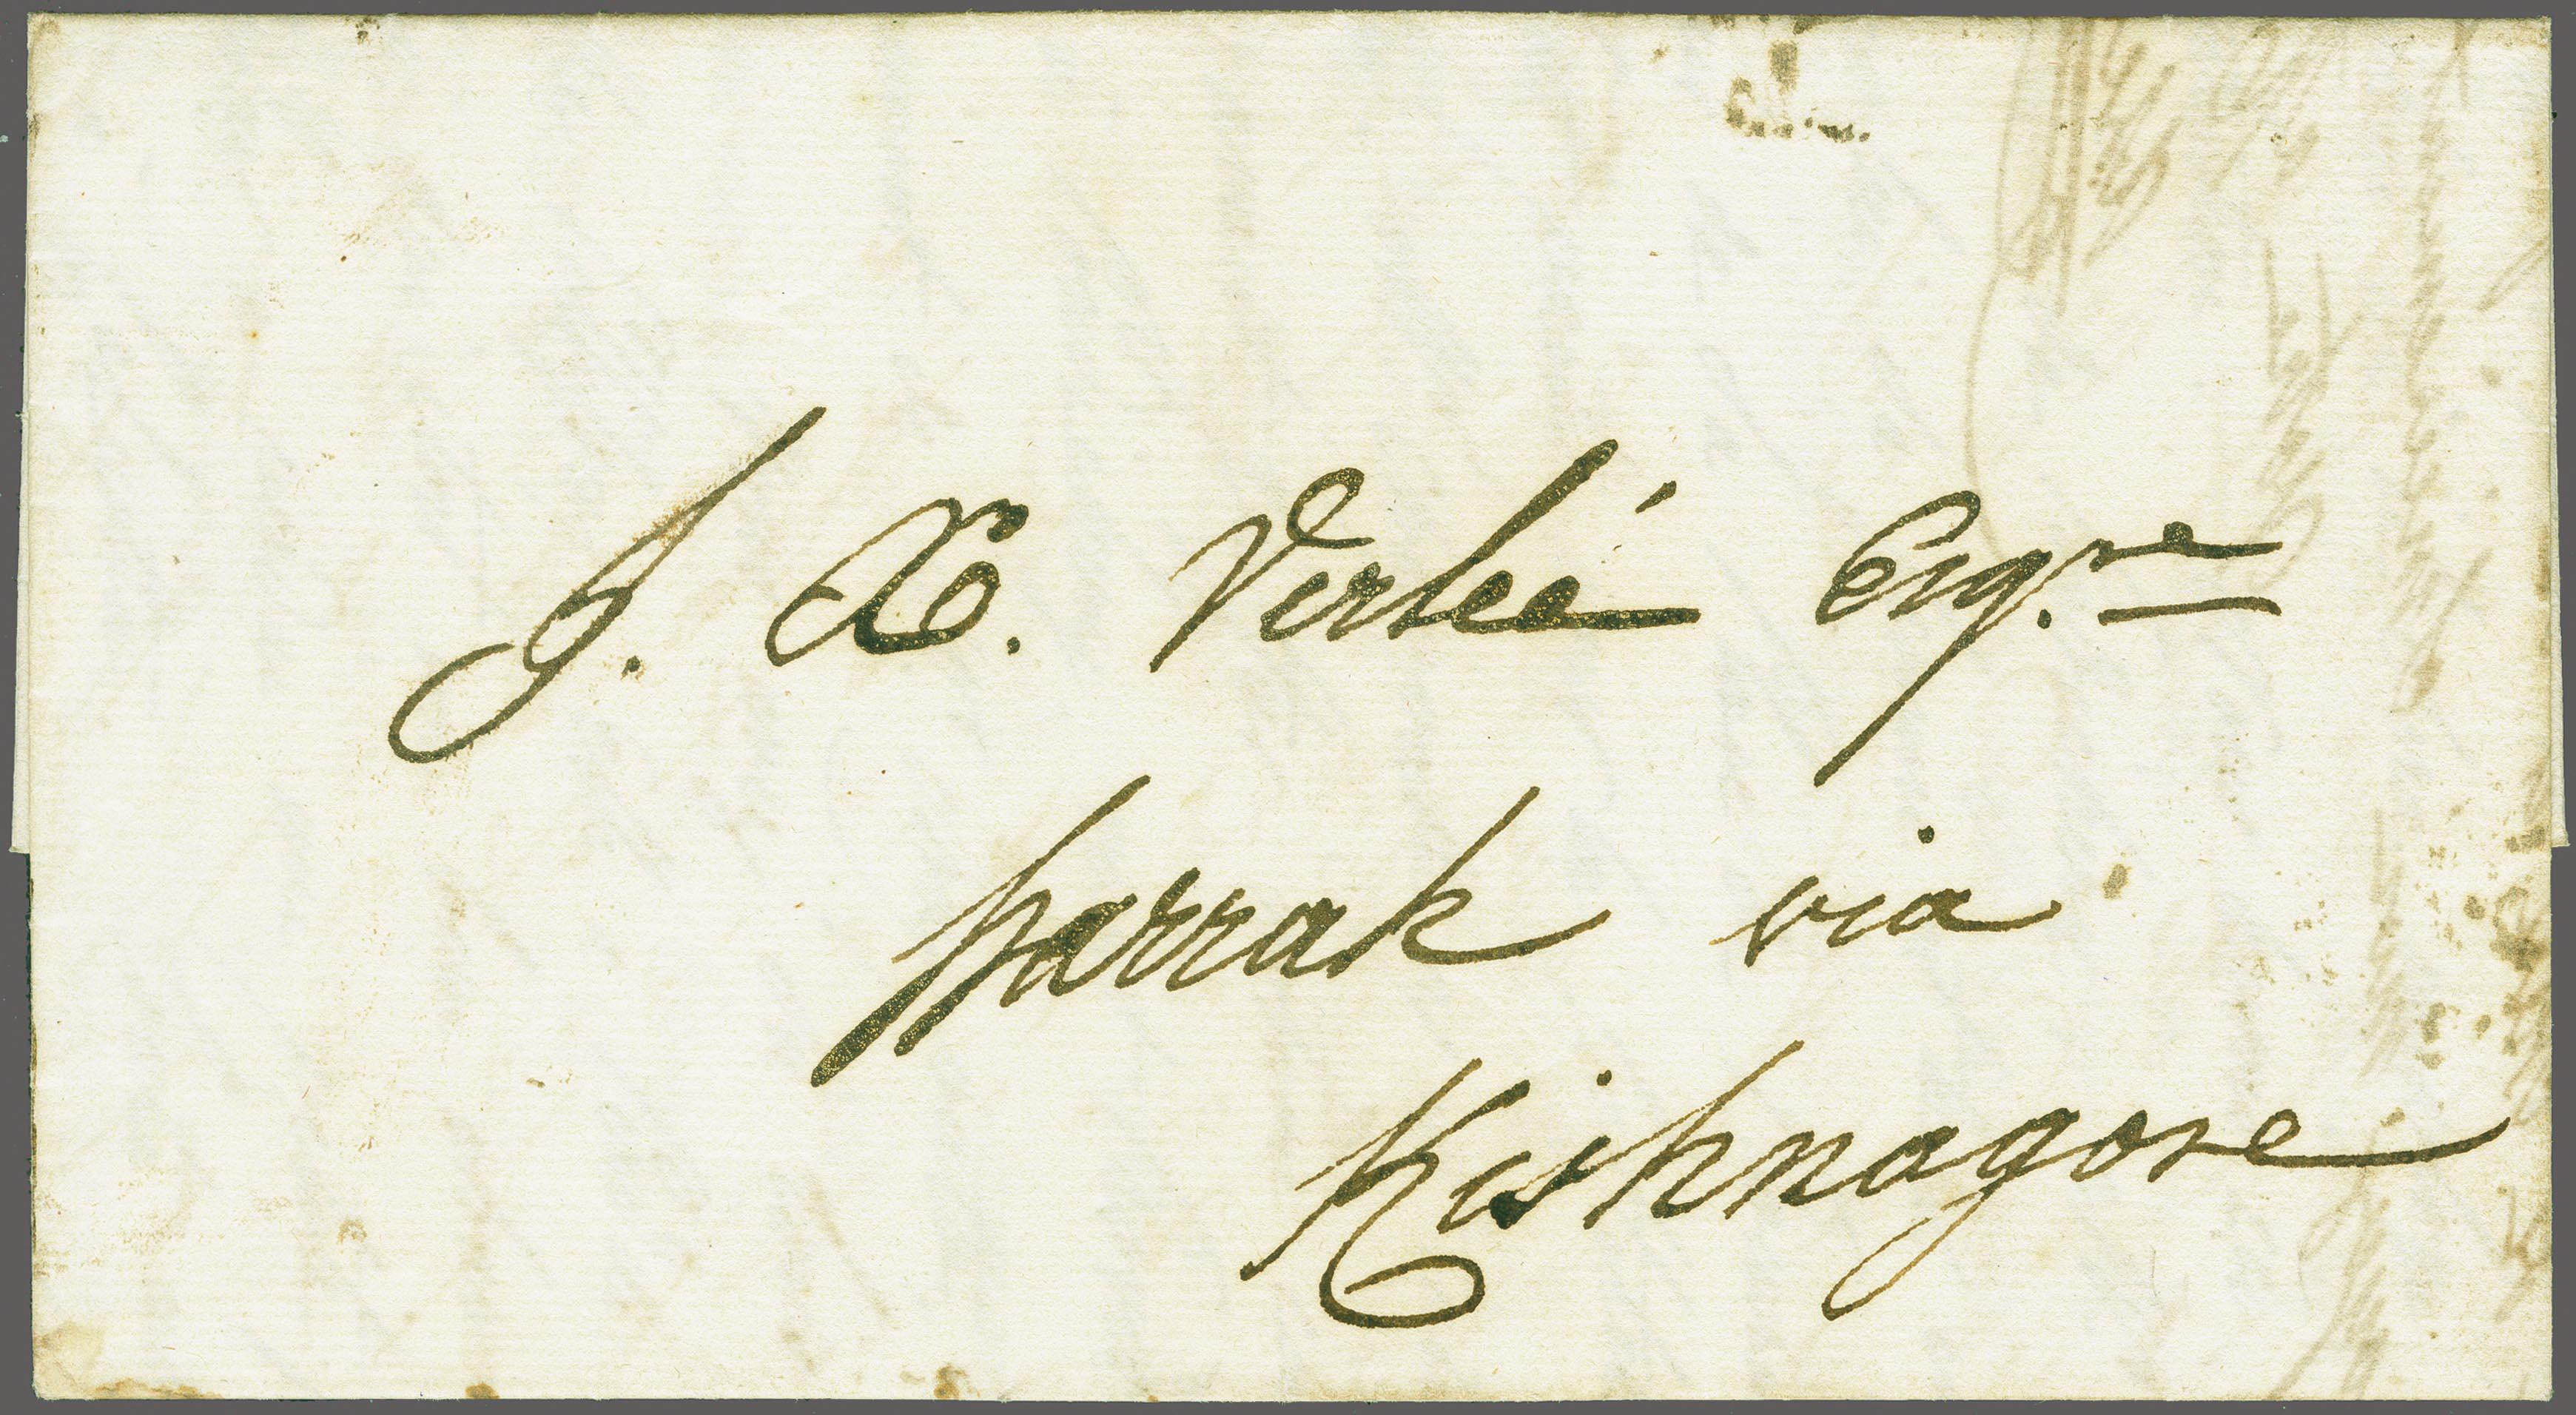 J. X. Verlée Esq.re
parrak via
Kishnagore